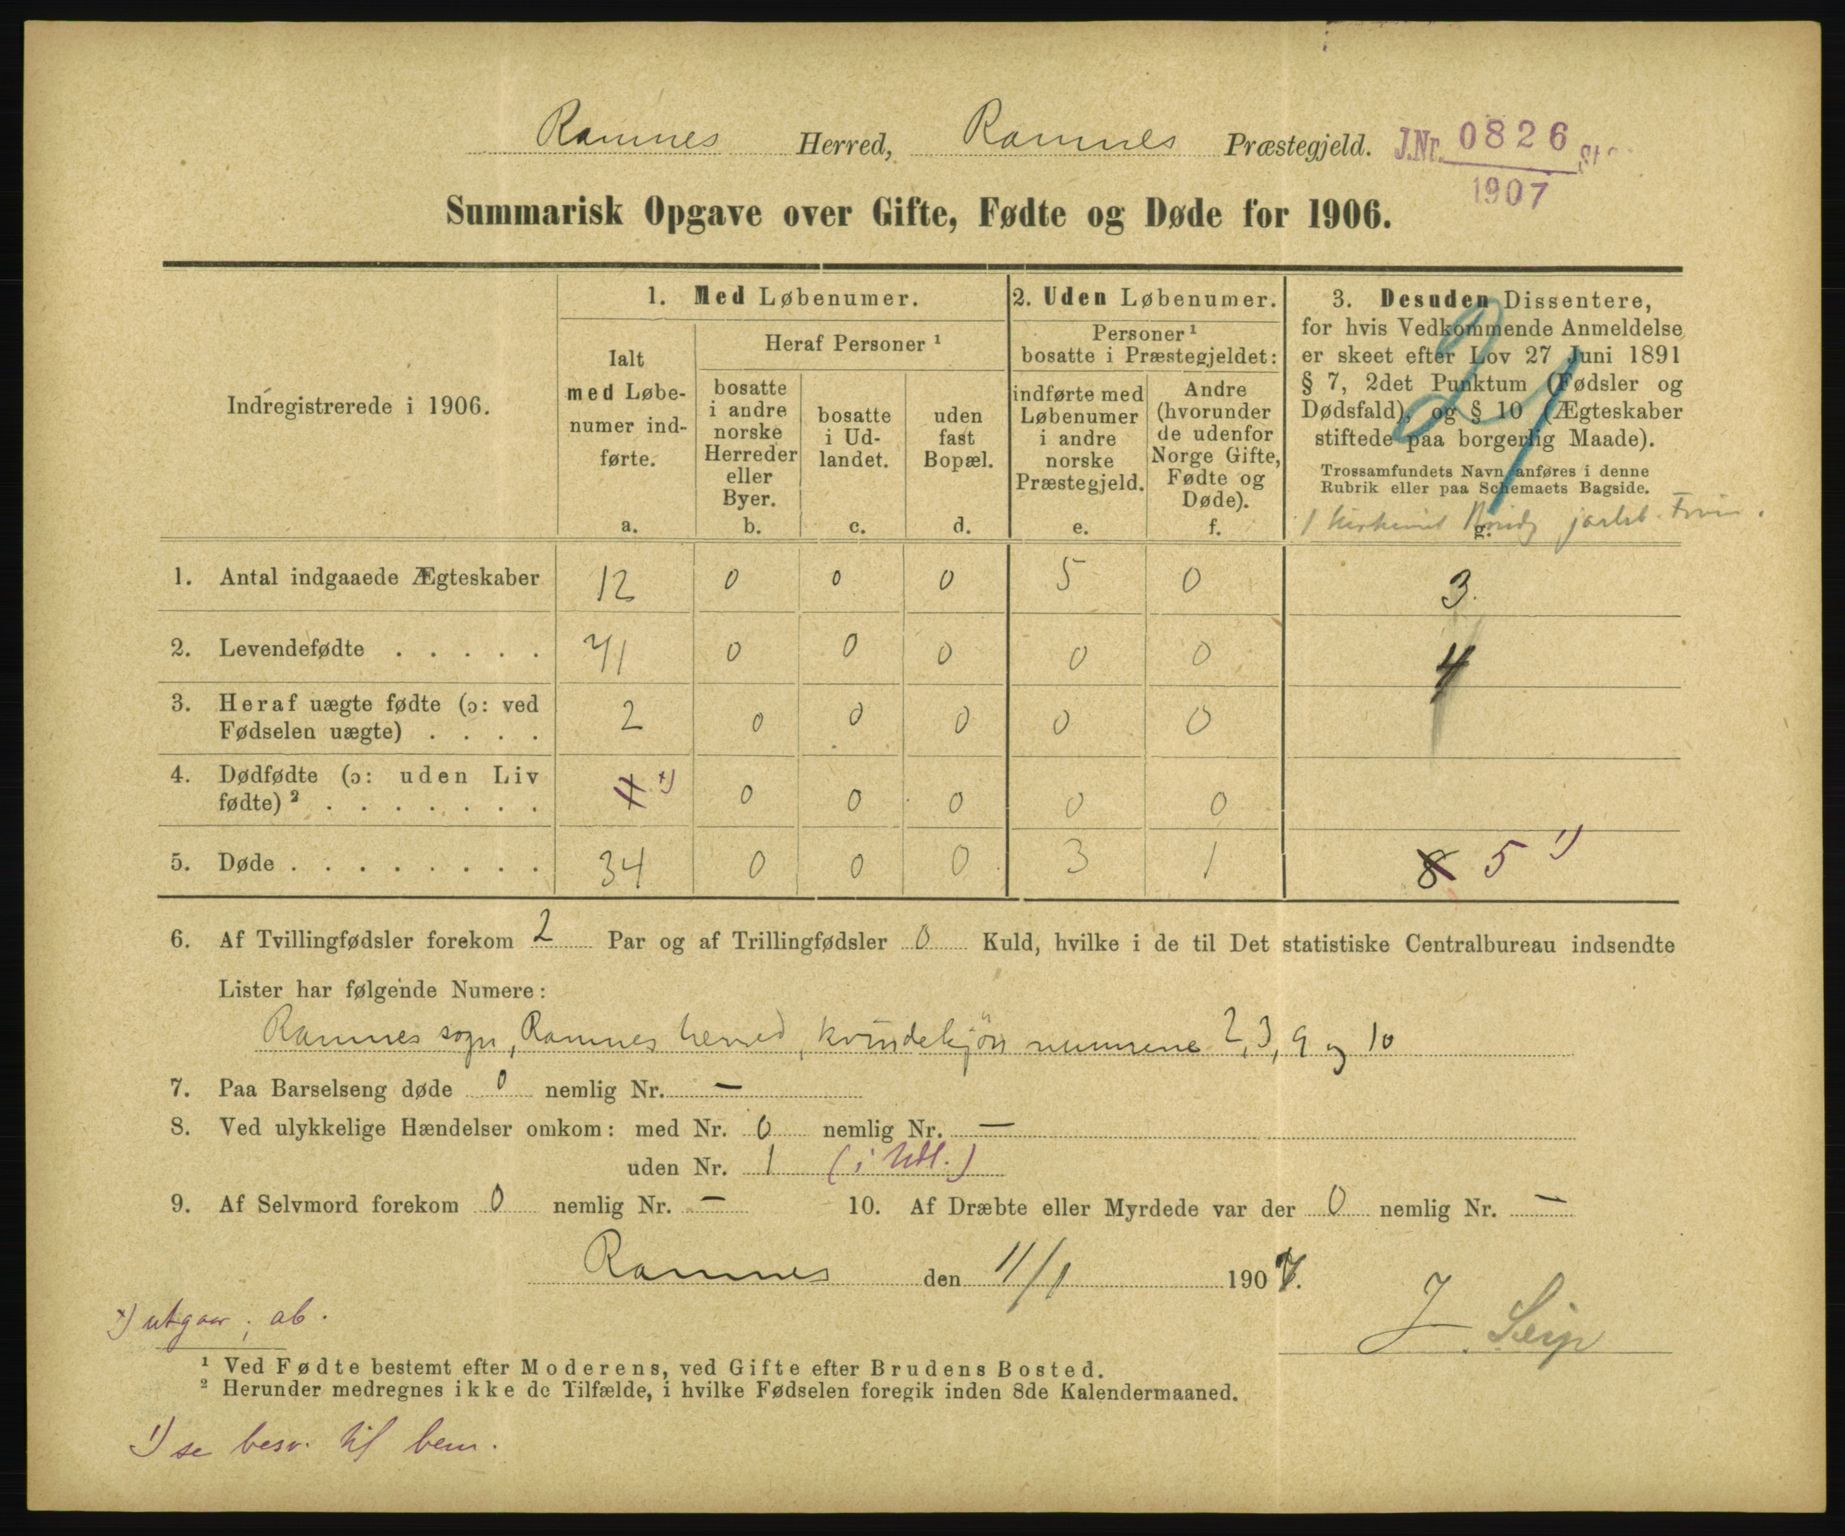 Ramnes Herred, Ramnes Præstegjeld. J.Nr. 0826
1907
Summarisk Opgave over Gifte, Fødte og Døde for 1906.
Indregistrerede i 1906.
1. Med Løbenumer.
Ialt
med Løbe-
numer ind-
førte.
a.
Heraf Personer ¹
bosatte
i andre
norske
Herreder
eller
Byer.
b.
bosatte
i Ud-
landet.
c.
uden
fast
Bopæl.
d.
2. Uden Løbenumer.
Personer ¹
bosatte i Præstegjeldet:
indførte med
Løbenumer
i andre
norske
Præstegjeld.
e.
Andre
(hvorunder
de udenfor
Norge Gifte,
Fødte og
Døde).
f.
3. Desuden Dissentere,
for hvis Vedkommende Anmeldelse
er skeet efter Lov 27 Juni 1891
§ 7, 2det Punktum (Fødsler og
Dødsfald), og § 10 (Ægteskaber
stiftede paa borgerlig Maade).
Trossamfundets Navn anføres i denne
Rubrik eller paa Schemaets Bagside.
g.
24
1. Antal indgaaede Ægteskaber 12 0 0 0 5 0 3.
2. Levendefødte . . . . . 41 0 0 0 0 0 4
3. Heraf uægte fødte (ɔ: ved
Fødselen uægte) . . . . 2 0 0 0 0 0
4. Dødfødte (ɔ: uden Liv
fødte) ² . . . . . . . 1 ×) 0 0 0 0 0
5. Døde . . . . . . . . 34 0 0 0 3 1 8 5 ¹)
6. Af Tvillingfødsler forekom 2 Par og af Trillingfødsler 0 Kuld, hvilke i de til Det statistiske Centralbureau indsendte
Lister har følgende Numere:
Ramnes sogn, Ramnes herred, kvindekjøn numrene 2, 3, 9 og 10
7. Paa Barselseng døde 0 nemlig Nr. —
8. Ved ulykkelige Hændelser omkom: med Nr. 0 nemlig Nr. —
uden Nr. 1 (i Udl.)
9. Af Selvmord forekom 0 nemlig Nr. — 10. Af Dræbte eller Myrdede var der 0 nemlig Nr. —
Ramnes den 11/1 1907.
J. Seip
×) utgaar; ab.
¹ Ved Fødte bestemt efter Moderens, ved Gifte efter Brudens Bosted.
² Herunder medregnes ikke de Tilfælde, i hvilke Fødselen foregik inden 8de Kalendermaaned.
¹) se besv. til bem.